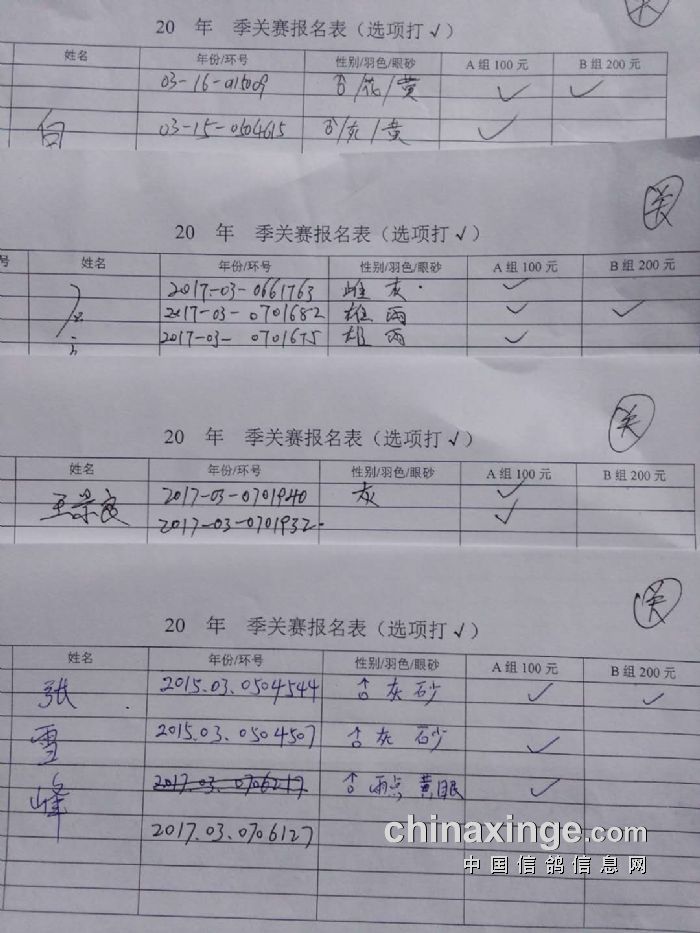 20 年 季关赛报名表（选项打√）
姓名 年份/环号 性别/羽色/眼砂 A 组 100 元 B 组 200 元
03-16-015009 ♂/花/黄 √ √
白 03-15-0504615 ♂/灰/黄 √
关
20 年 季关赛报名表（选项打√）
号 姓名 年份/环号 性别/羽色/眼砂 A 组 100 元 B 组 200 元
2017-03-0661763 雌 灰 √
2017-03-0701682 雄 雨 √ √
2017-03-0701675 雄 雨 √
关
20 年 季关赛报名表（选项打√）
姓名 年份/环号 性别/羽色/眼砂 A 组 100 元 B 组 200 元
王景良 2017-03-0701940 灰 √
2017-03-0701932 √
关
20 年 季关赛报名表（选项打√）
姓名 年份/环号 性别/羽色/眼砂 A 组 100 元 B 组 200 元
张 2015.03.0504544 ♂ 灰 砂 √ √
雪 2015.03.0504507 ♂ 灰 砂 √
峰 2017.03.0706217 ♂ 雨点 黄眼 √
2017.03.0706127
chinaxinge.com
中国信鸽信息网